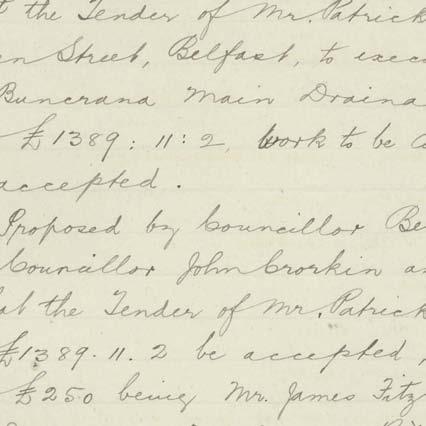 the Tender of Mr. Patrick
Street, Belfast, to
Buncrana Main
£1389:11:2, work to be
accepted.
Proposed by Councillor
Councillor John Crorkin
the Tender of Mr. Patrick
£1389.11.2 be accepted,
£250 being Mr. James Fitz